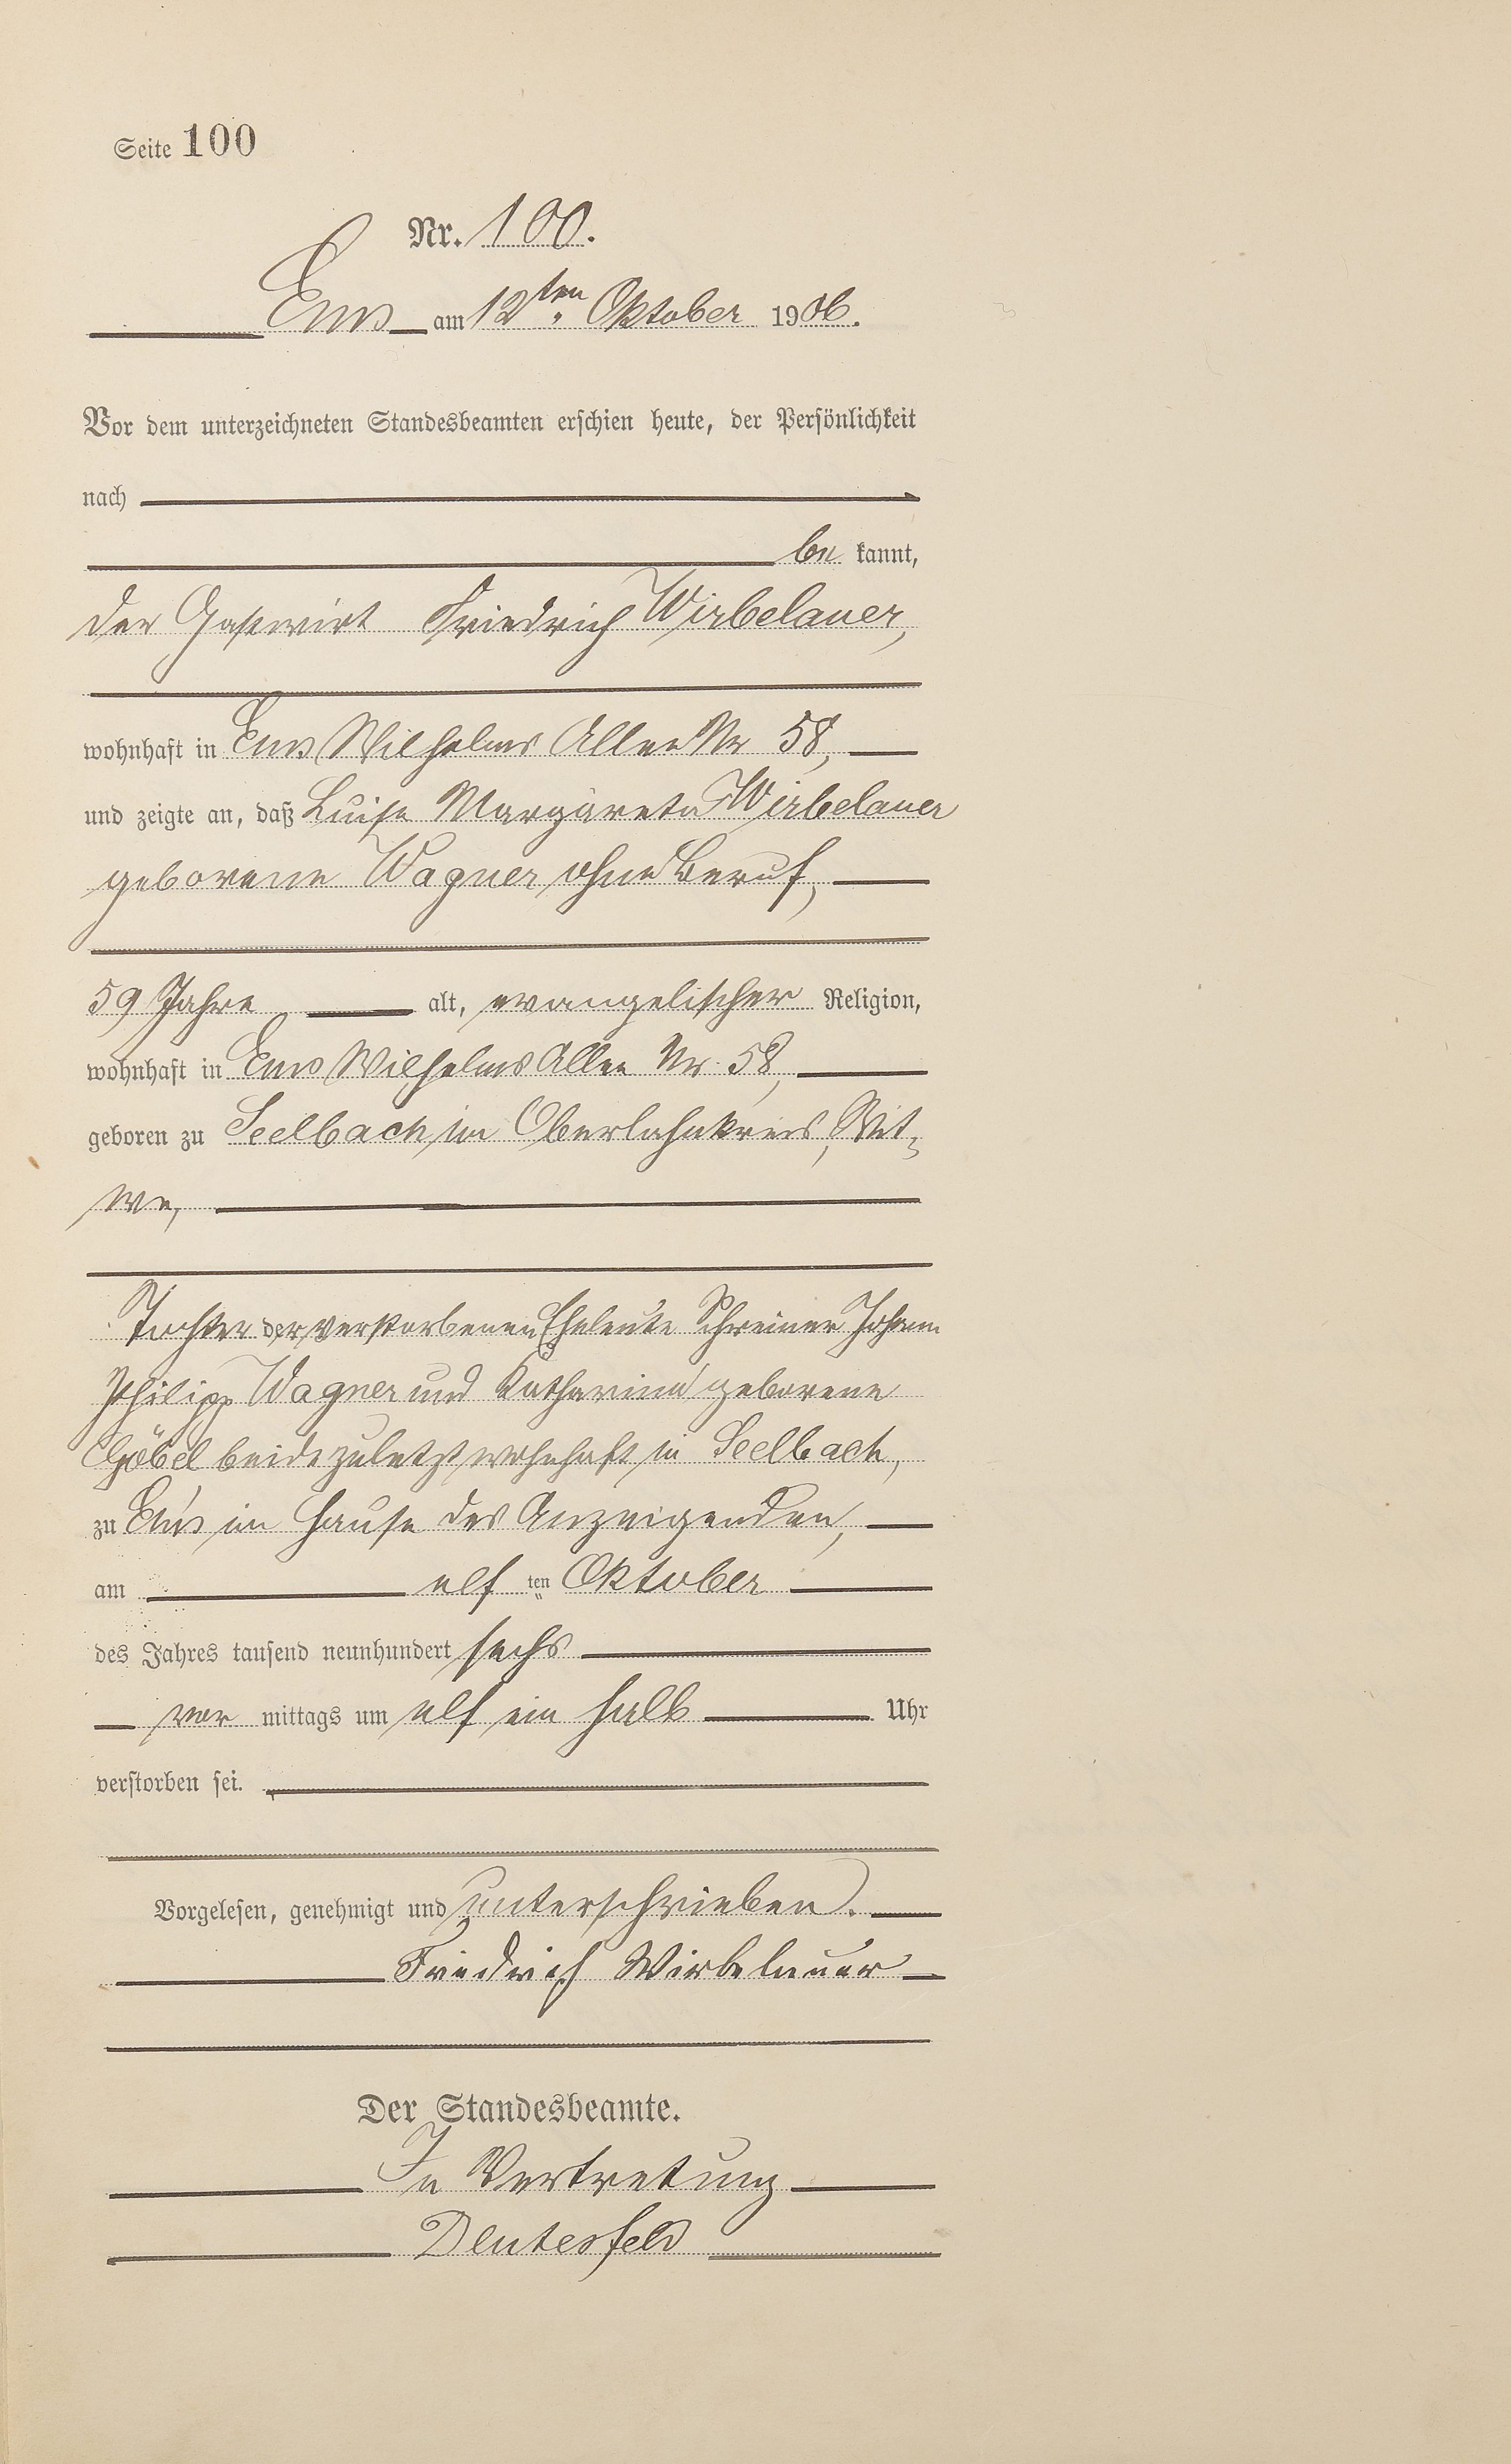 Seite 100
Nr. 100.
Ems am 12ten Oktober 1906.
Vor dem unterzeichneten Standesbeamten erschien heute, der Persönlichkeit
nach
be kannt,
der Gastwirt Friedrich Wirbelauer,
wohnhaft in Ems Wilhelms Allee Nr 58,
und zeigte an, daß Luise Margareta Wirbelauer
geborene Wagner, ohne Beruf,
59 Jahre alt, evangelischer Religion,
wohnhaft in Ems Wilhelms Allee Nr. 58,
geboren zu Seelbach im Oberlahnkreis, Wit-
we,
Tochter der verstorbenen Eheleute Schreiner Johann
Philipp Wagner und Katharina geborene
Göbel beide zuletzt wohnhaft in Seelbach,
zu Ems im Hause des Anzeigenden,
am elf ten Oktober
des Jahres tausend neunhundert sechs
vor mittags um elf ein halb Uhr
verstorben sei.
Vorgelesen, genehmigt und unterschrieben.
Friedrich Wirbelauer
Der Standesbeamte.
In Vertretung
Deutesfeld